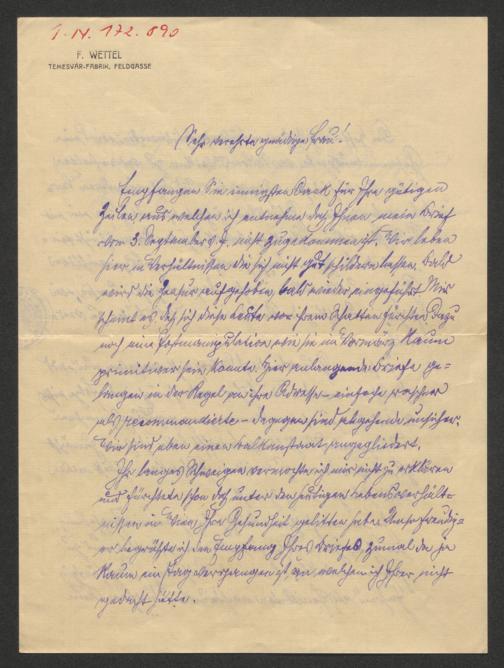 I.N. 172.890
F. WETTEL
TEMESVÁR-FABRIK, FELDGASSE
Sehr verehrte gnädige Frau!
Empfangen Sie innigsten Dank für Ihre gütigen
Zeilen aus welchen ich entnehme daß Ihnen mein Brief
vom 3. September v. J. nicht zugekommen ist. Wir leben
hier in Verhältnissen die sich nicht gut schildern lassen. Bald
wird die Zensur aufgehoben, bald wieder eingeführt. Mir
scheint es daß sich diese Leute vor ihrem Schatten fürchten. Dazu
noch eine Postmanipulation wie sie im Vormärz kaum
primitiver sein konnte. Hier anlangende Briefe ge-
langen in der Regel an ihre Adresse – einfache rascher
als recommandirte – dagegen sind abgehende unsicher.
Wir sind eben einem Balkanstaat angegliedert.
Ihr langes Schweigen vermochte ich mir nicht zu erklären
und fürchtete schon daß unter den heutigen Lebensverhält-
nissen in Wien Ihre Gesundheit gelitten habe. Umso freudi-
er begrüßte ich den Empfang Ihres Briefes zumal da ja
kaum ein Tag vergangen ist an welchem ich Ihrer nicht
gedacht hätte.